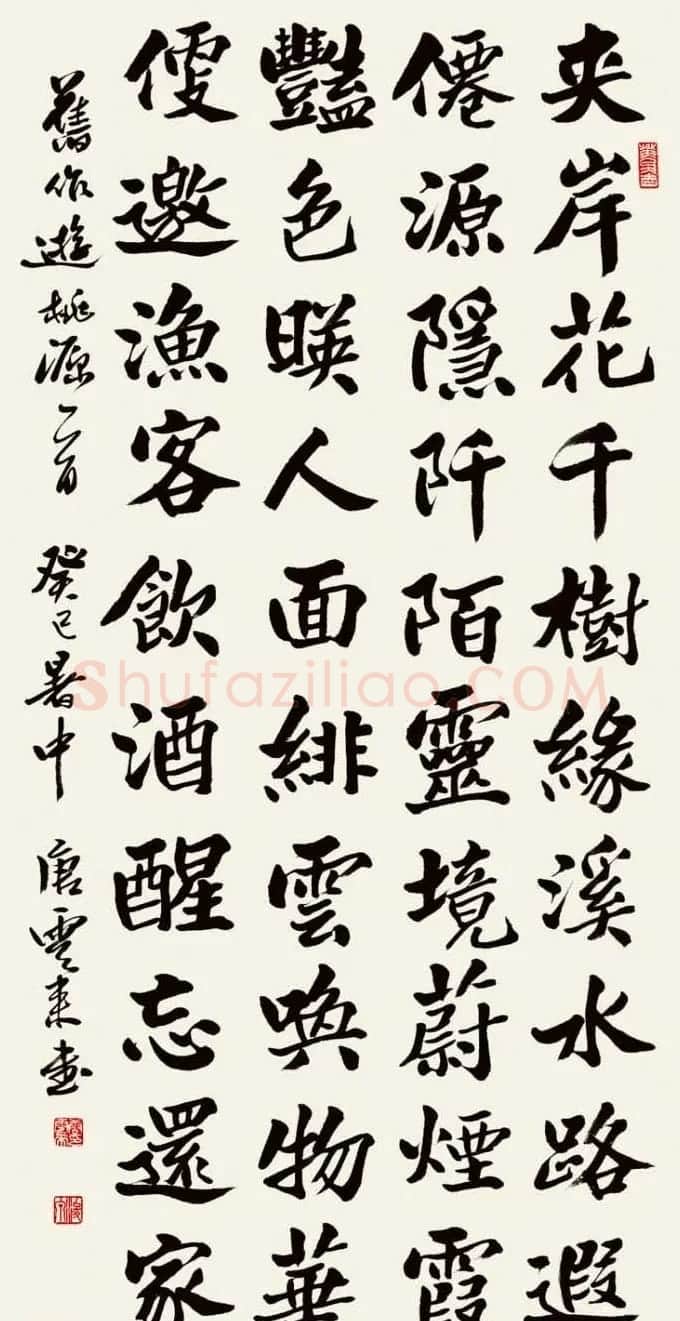 夾岸花千樹緣溪水路遐
僊源隱阡陌靈境蔚煙霞
豔色暎人面緋雲喚物華
便邀漁客飲酒醒忘還家
舊作遊桃源一首 癸巳暑中 唐雲來書
Shufaziliao.COM